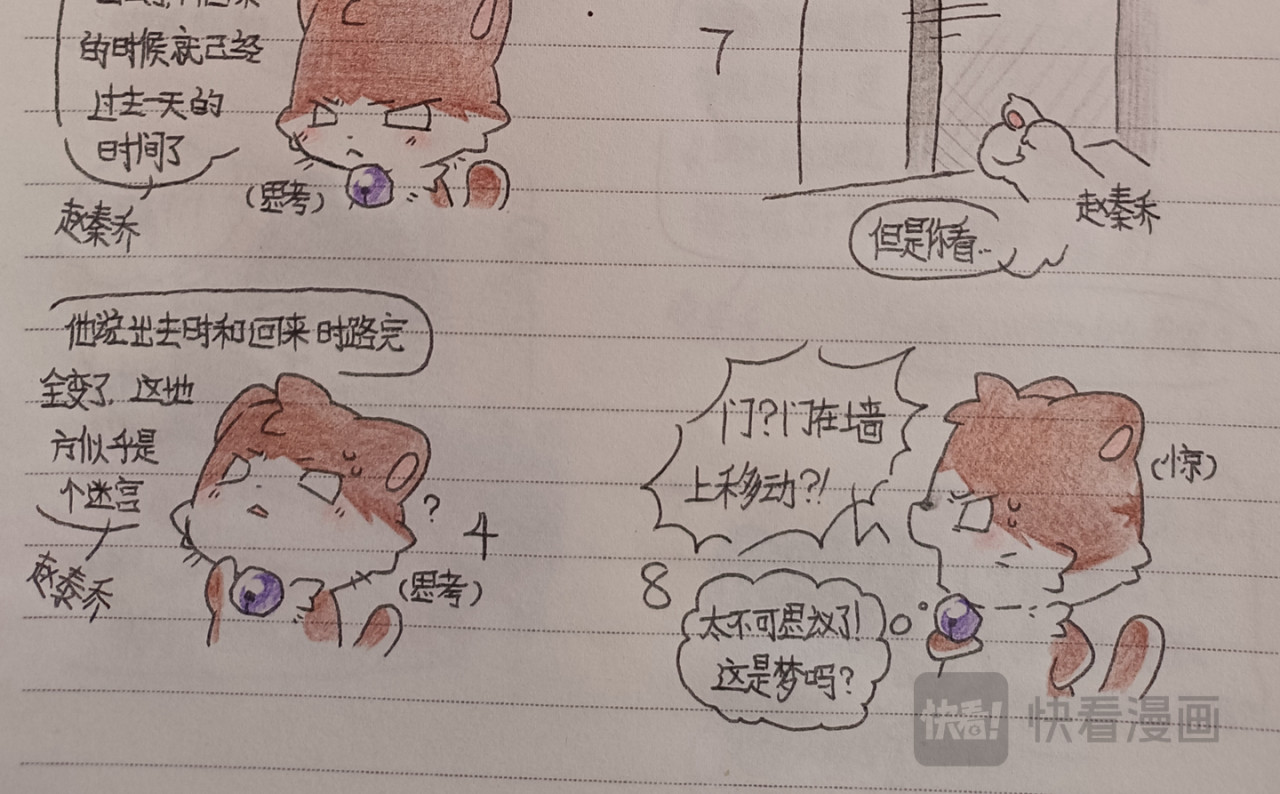 的时候就已经
过去一天的
时间了
(思考)
赵秦乔
他说出去时和回来时路完
全变了,这地
方似乎是
个迷宫
?
4
(思考)
赵秦乔
7
赵秦乔
但是你看...
门?门在墙
上移动?!
(惊)
8
太不可思议了!
这是梦吗?
快看!
快看漫画